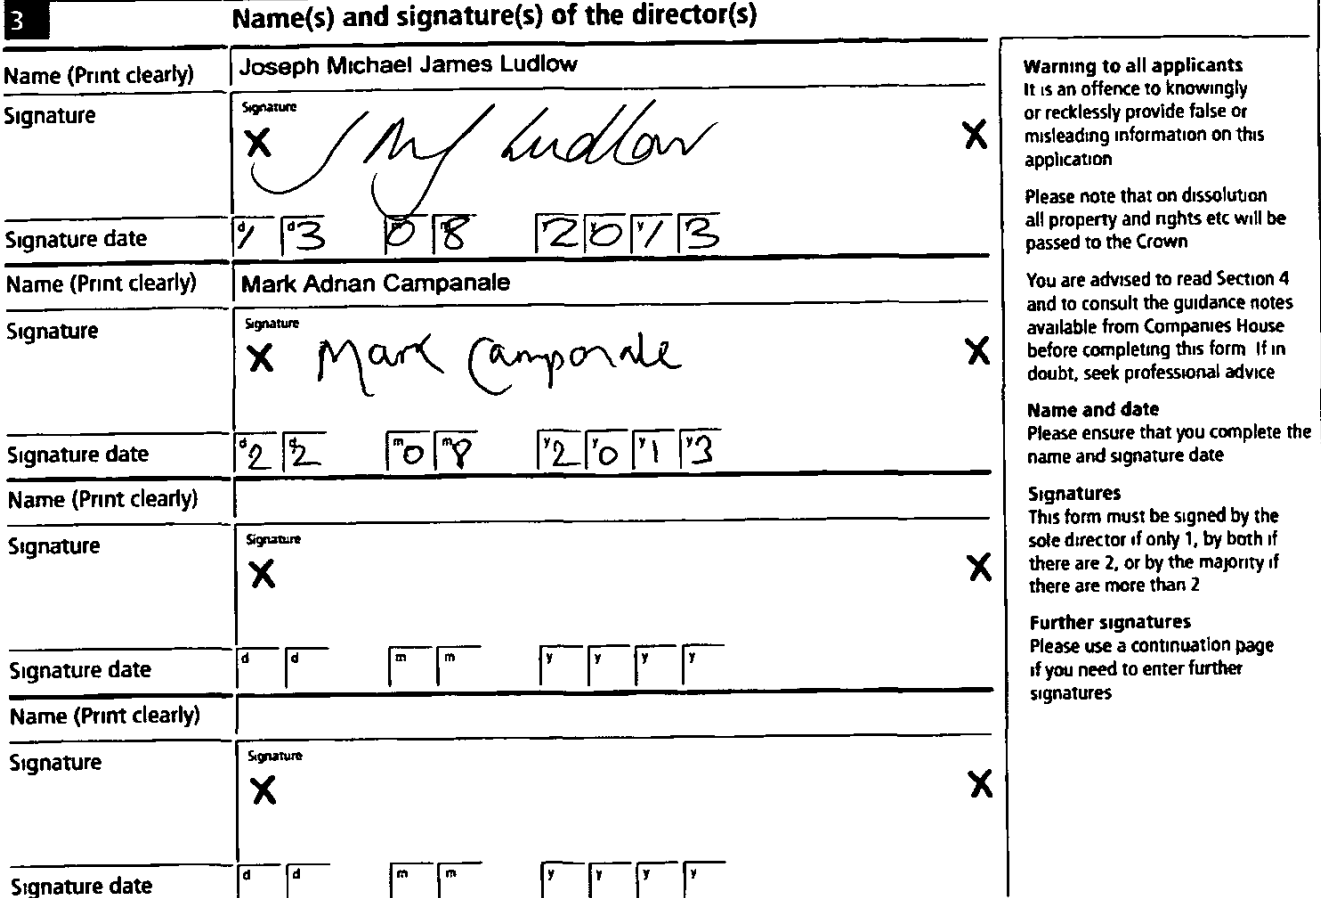 3 Name(s) and signature(s) of the director(s)
Name (Print clearly) Joseph Michael James Ludlow
Signature Signature
X JMJ Ludlow X
Signature date d1 d3 m0 m8 y2 y0 y1 y3
Name (Print clearly) Mark Adrian Campanale
Signature Signature
X Mark Campanale X
Signature date d2 d2 m0 m8 y2 y0 y1 y3
Name (Print clearly)
Signature Signature
X X
Signature date d d m m y y y y
Name (Print clearly)
Signature Signature
X X
Signature date d d m m y y y y
Warning to all applicants
It is an offence to knowingly
or recklessly provide false or
misleading information on this
application
Please note that on dissolution
all property and rights etc will be
passed to the Crown
You are advised to read Section 4
and to consult the guidance notes
available from Companies House
before completing this form If in
doubt, seek professional advice
Name and date
Please ensure that you complete the
name and signature date
Signatures
This form must be signed by the
sole director if only 1, by both if
there are 2, or by the majority if
there are more than 2
Further signatures
Please use a continuation page
if you need to enter further
signatures